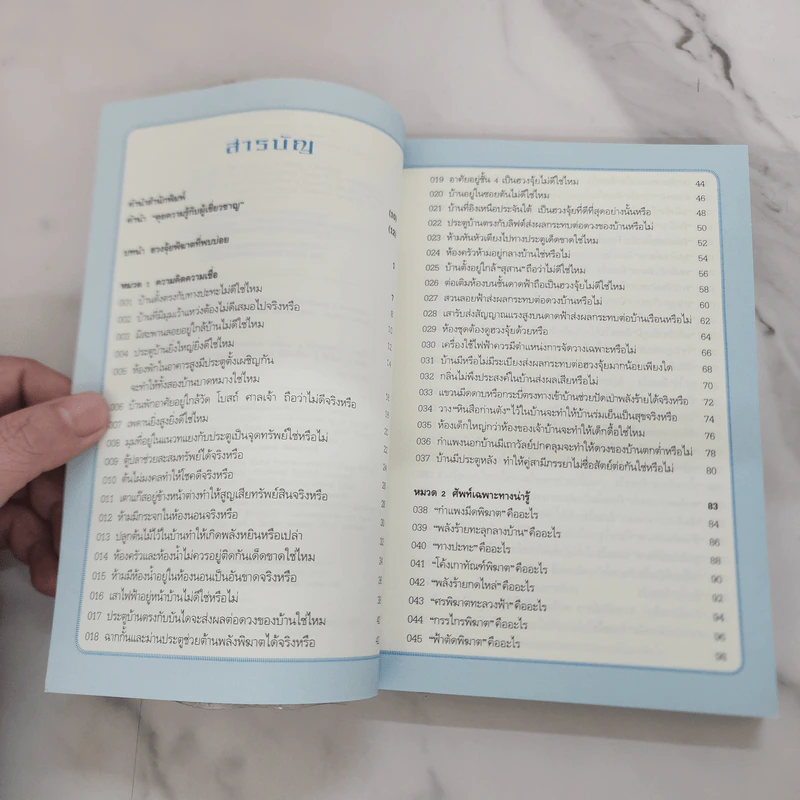 สารบัญ
คำนำสำนักพิมพ์
คำนำ "คุยความรู้กับผู้เชี่ยวชาญ"
บทนำ ฮวงจุ้ยพิฆาตที่พบบ่อย 1
หมวด 1 ความคิดความเชื่อ 7
001 บ้านตั้งตรงกับทางปะทะไม่ดีใช่ไหม
002 บ้านที่มีมุมเว้าแหว่งต้องไม่ดีเสมอไปจริงหรือ
003 มีสะพานลอยอยู่ใกล้บ้านไม่ดีใช่ไหม
004 ประตูบ้านยิ่งใหญ่ยิ่งดีใช่ไหม
005 ห้องพักในอาคารสูงมีประตูตั้งเผชิญกัน
จะทำให้ทั้งสองบ้านบาดหมางใช่ไหม
006 บ้านพักอาศัยอยู่ใกล้วัด โบสถ์ ศาลเจ้า ถือว่าไม่ดีจริงหรือ
007 เพดานยิ่งสูงยิ่งดีใช่ไหม
008 มุมที่อยู่ในแนวทแยงกับประตูเป็นจุดทรัพย์ใช่หรือไม่
009 ตู้ปลาช่วยสะสมทรัพย์ได้จริงหรือ
010 ต้นไม้มงคลทำให้โชคดีจริงหรือ
011 เตาแก๊สอยู่ข้างหน้าต่างทำให้สูญเสียทรัพย์สินจริงหรือ
012 ห้ามมีกระจกในห้องนอนจริงหรือ
013 ปลูกต้นไม้ไว้ในบ้านทำให้เกิดพลังหยินหรือเปล่า
014 ห้องครัวและห้องน้ำไม่ควรอยู่ติดกันเด็ดขาดใช่ไหม
015 ห้ามมีห้องน้ำอยู่ในห้องนอนเป็นอันขาดจริงหรือ
016 เสาไฟฟ้าอยู่หน้าบ้านไม่ดีใช่หรือไม่
017 ประตูบ้านตรงกับบันไดจะส่งผลต่อดวงของบ้านใช่ไหม
018 ฉากกั้นและม่านประตูช่วยต้านพลังพิฆาตได้จริงหรือ
019 อาศัยอยู่ชั้น 4 เป็นฮวงจุ้ยไม่ดีใช่ไหม 44
020 บ้านอยู่ในซอยตันไม่ดีใช่ไหม 46
021 บ้านที่อิงเหนือประจันใต้ เป็นฮวงจุ้ยที่ดีที่สุดอย่างนั้นหรือ 48
022 ประตูบ้านตรงกับลิฟต์ส่งผลกระทบต่อดวงของบ้านหรือไม่ 50
023 ห้ามหันหัวเตียงไปทางประตูเด็ดขาดใช่ไหม 52
024 ห้องครัวห้ามอยู่กลางบ้านใช่หรือไม่ 54
025 บ้านตั้งอยู่ใกล้"สุสาน"ถือว่าไม่ดีใช่ไหม 56
026 ต่อเติมห้องบนชั้นดาดฟ้าถือเป็นฮวงจุ้ยไม่ดีใช่ไหม 58
027 สวนลอยฟ้าส่งผลกระทบต่อดวงบ้านหรือไม่ 60
028 เสารับส่งสัญญาณแรงสูงบนดาดฟ้าส่งผลกระทบต่อบ้านเรือนหรือไม่ 62
029 ห้องชุดต้องดูฮวงจุ้ยด้วยหรือ 64
030 เครื่องใช้ไฟฟ้าควรมีตำแหน่งการจัดวางเฉพาะหรือไม่ 66
031 บ้านมีหรือไม่มีระเบียงส่งผลกระทบต่อฮวงจุ้ยมากน้อยเพียงใด 68
032 กลิ่นไม่พึงประสงค์ในบ้านส่งผลเสียหรือไม่ 70
033 แขวนมีดดาบหรือกระบี่ตรงทางเข้าบ้านช่วยปัดเป่าพลังร้ายได้จริงหรือ 72
034 วาง"หินสือก่านตัง"ไว้ในบ้านจะทำให้บ้านร่มเย็นเป็นสุขจริงหรือ 74
035 ห้องเด็กใหญ่กว่าห้องของเจ้าบ้านจะทำให้เด็กดื้อใช่ไหม 76
036 กำแพงนอกบ้านมีเถาวัลย์ปกคลุมจะทำให้ดวงของบ้านตกต่ำหรือไม่ 78
037 บ้านมีประตูหลัง ทำให้คู่สามีภรรยาไม่ซื่อสัตย์ต่อกันใช่หรือไม่ 80
หมวด 2 ศัพท์เฉพาะทางน่ารู้ 83
038 "กำแพงมีดพิฆาต"คืออะไร 84
039 "พลังร้ายทะลุกลางบ้าน"คืออะไร 86
040 "ทางปะทะ"คืออะไร 88
041 "โค้งเกาทัณฑ์พิฆาต"คืออะไร 90
042 "พลังร้ายกดไหล่"คืออะไร 92
043 "ศรพิฆาตทะลวงฟ้า"คืออะไร 94
044 "กรรไกรพิฆาต"คืออะไร 96
045 "ฟ้าตัดพิฆาต"คืออะไร 98